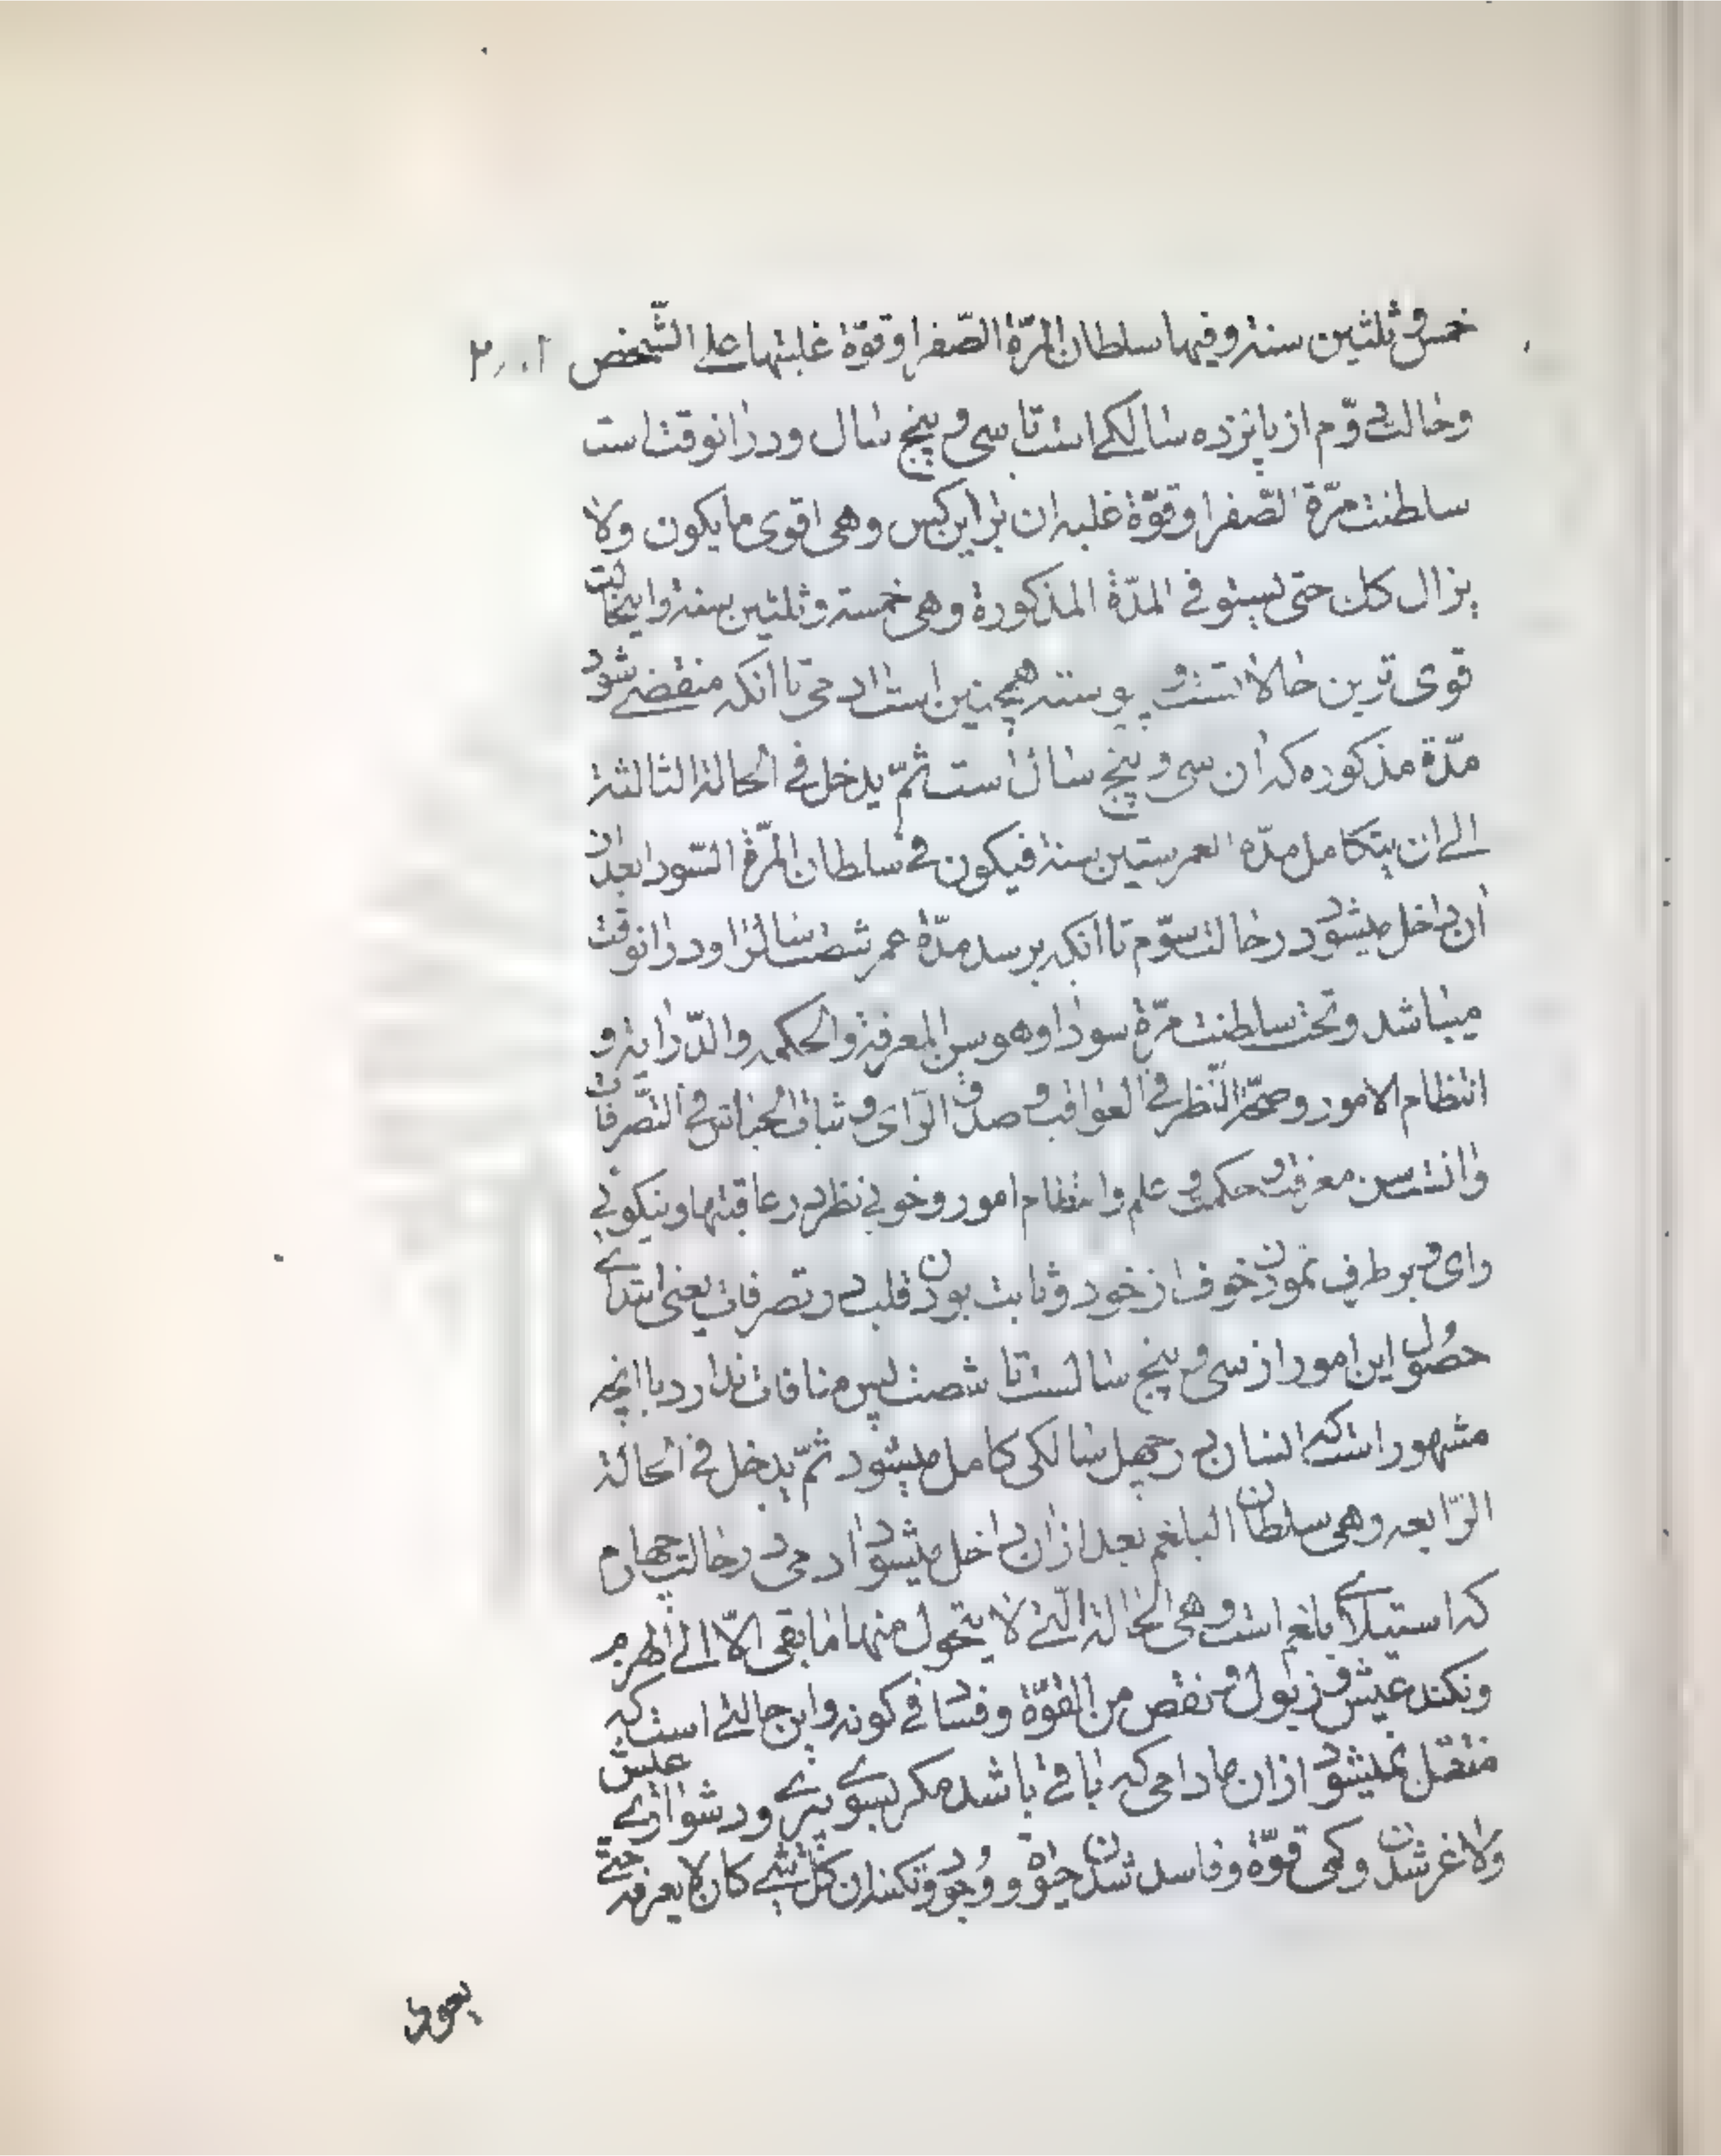 خمس و ثلثین سنة و فیها سلطان المرّة الصّفرا و قوّة غلبتها علی الشّخص
و حالت دوّم از پانزده سالکی است تا سی و پنج سال و در انوقت است
سلطنت مرّة الصّفرا و قوّة غلبه ان بر این کس و هی اقوی ما یکون و لا
یزال کذلک حتی یستوفی المدّة المذکورة و هی خمسة و ثلثین سنة و اینحالت
قوی ترین حالاتست و پیوسته همچنین است ادمی تا انکه منقضی شود
مدّة مذکوره که ان سی و پنج سال است ثمّ یدخل فی الحالة الثالثة
الی ان یتکامل مدّه العمر ستین سنة فیکون فی سلطان المرّة السّودا بعد از
ان داخل میشود در حالت سوّم تا انکه برسد مدّة عمر شصت سال را و در انوقت
میباشد و تحت سلطنت مرّة سودا و هو سن المعرفة و الحکمه و الدّرایة و
انتظام الامور و صحّة النّظر فی العواقب و صدق الرّای و ثبات الجاش فی التّصرفات
و انست سن معرفت و حکمت و علم و انتظام امور و خوبی نظر در عاقبتها و نیکوئی
رای و برطرف نمودن خوف از خود و ثابت بودن قلب در تصرفات یعنی ابتدای
حصول این امور از سی و پنج سالست تا شصت پس منافات ندارد با انچه
مشهور است که انسان در چهل سالکی کامل میشود ثمّ یدخل فی الحالة
الرّابعه و هی سلطان البلغم بعد از ان داخل میشود ادمی در حالت چهارم
که استیلای بلغم است و هی الحالة الّتی لا یتحول منها ما بقی الّا الی الهرم
و نکد عیش و ذبول و نقص من القوّة و فساد فی کونه و این حالتی است که
منتقل نمیشود از ان مادامی که باقی باشد مکر بسوی پیری و دشواری عیش
و لاغر شدن و کمی قوّة و فاسد شدن حیوة و وجود و نکند ان کلّ شی کان لا یعرفه حتی
یعود